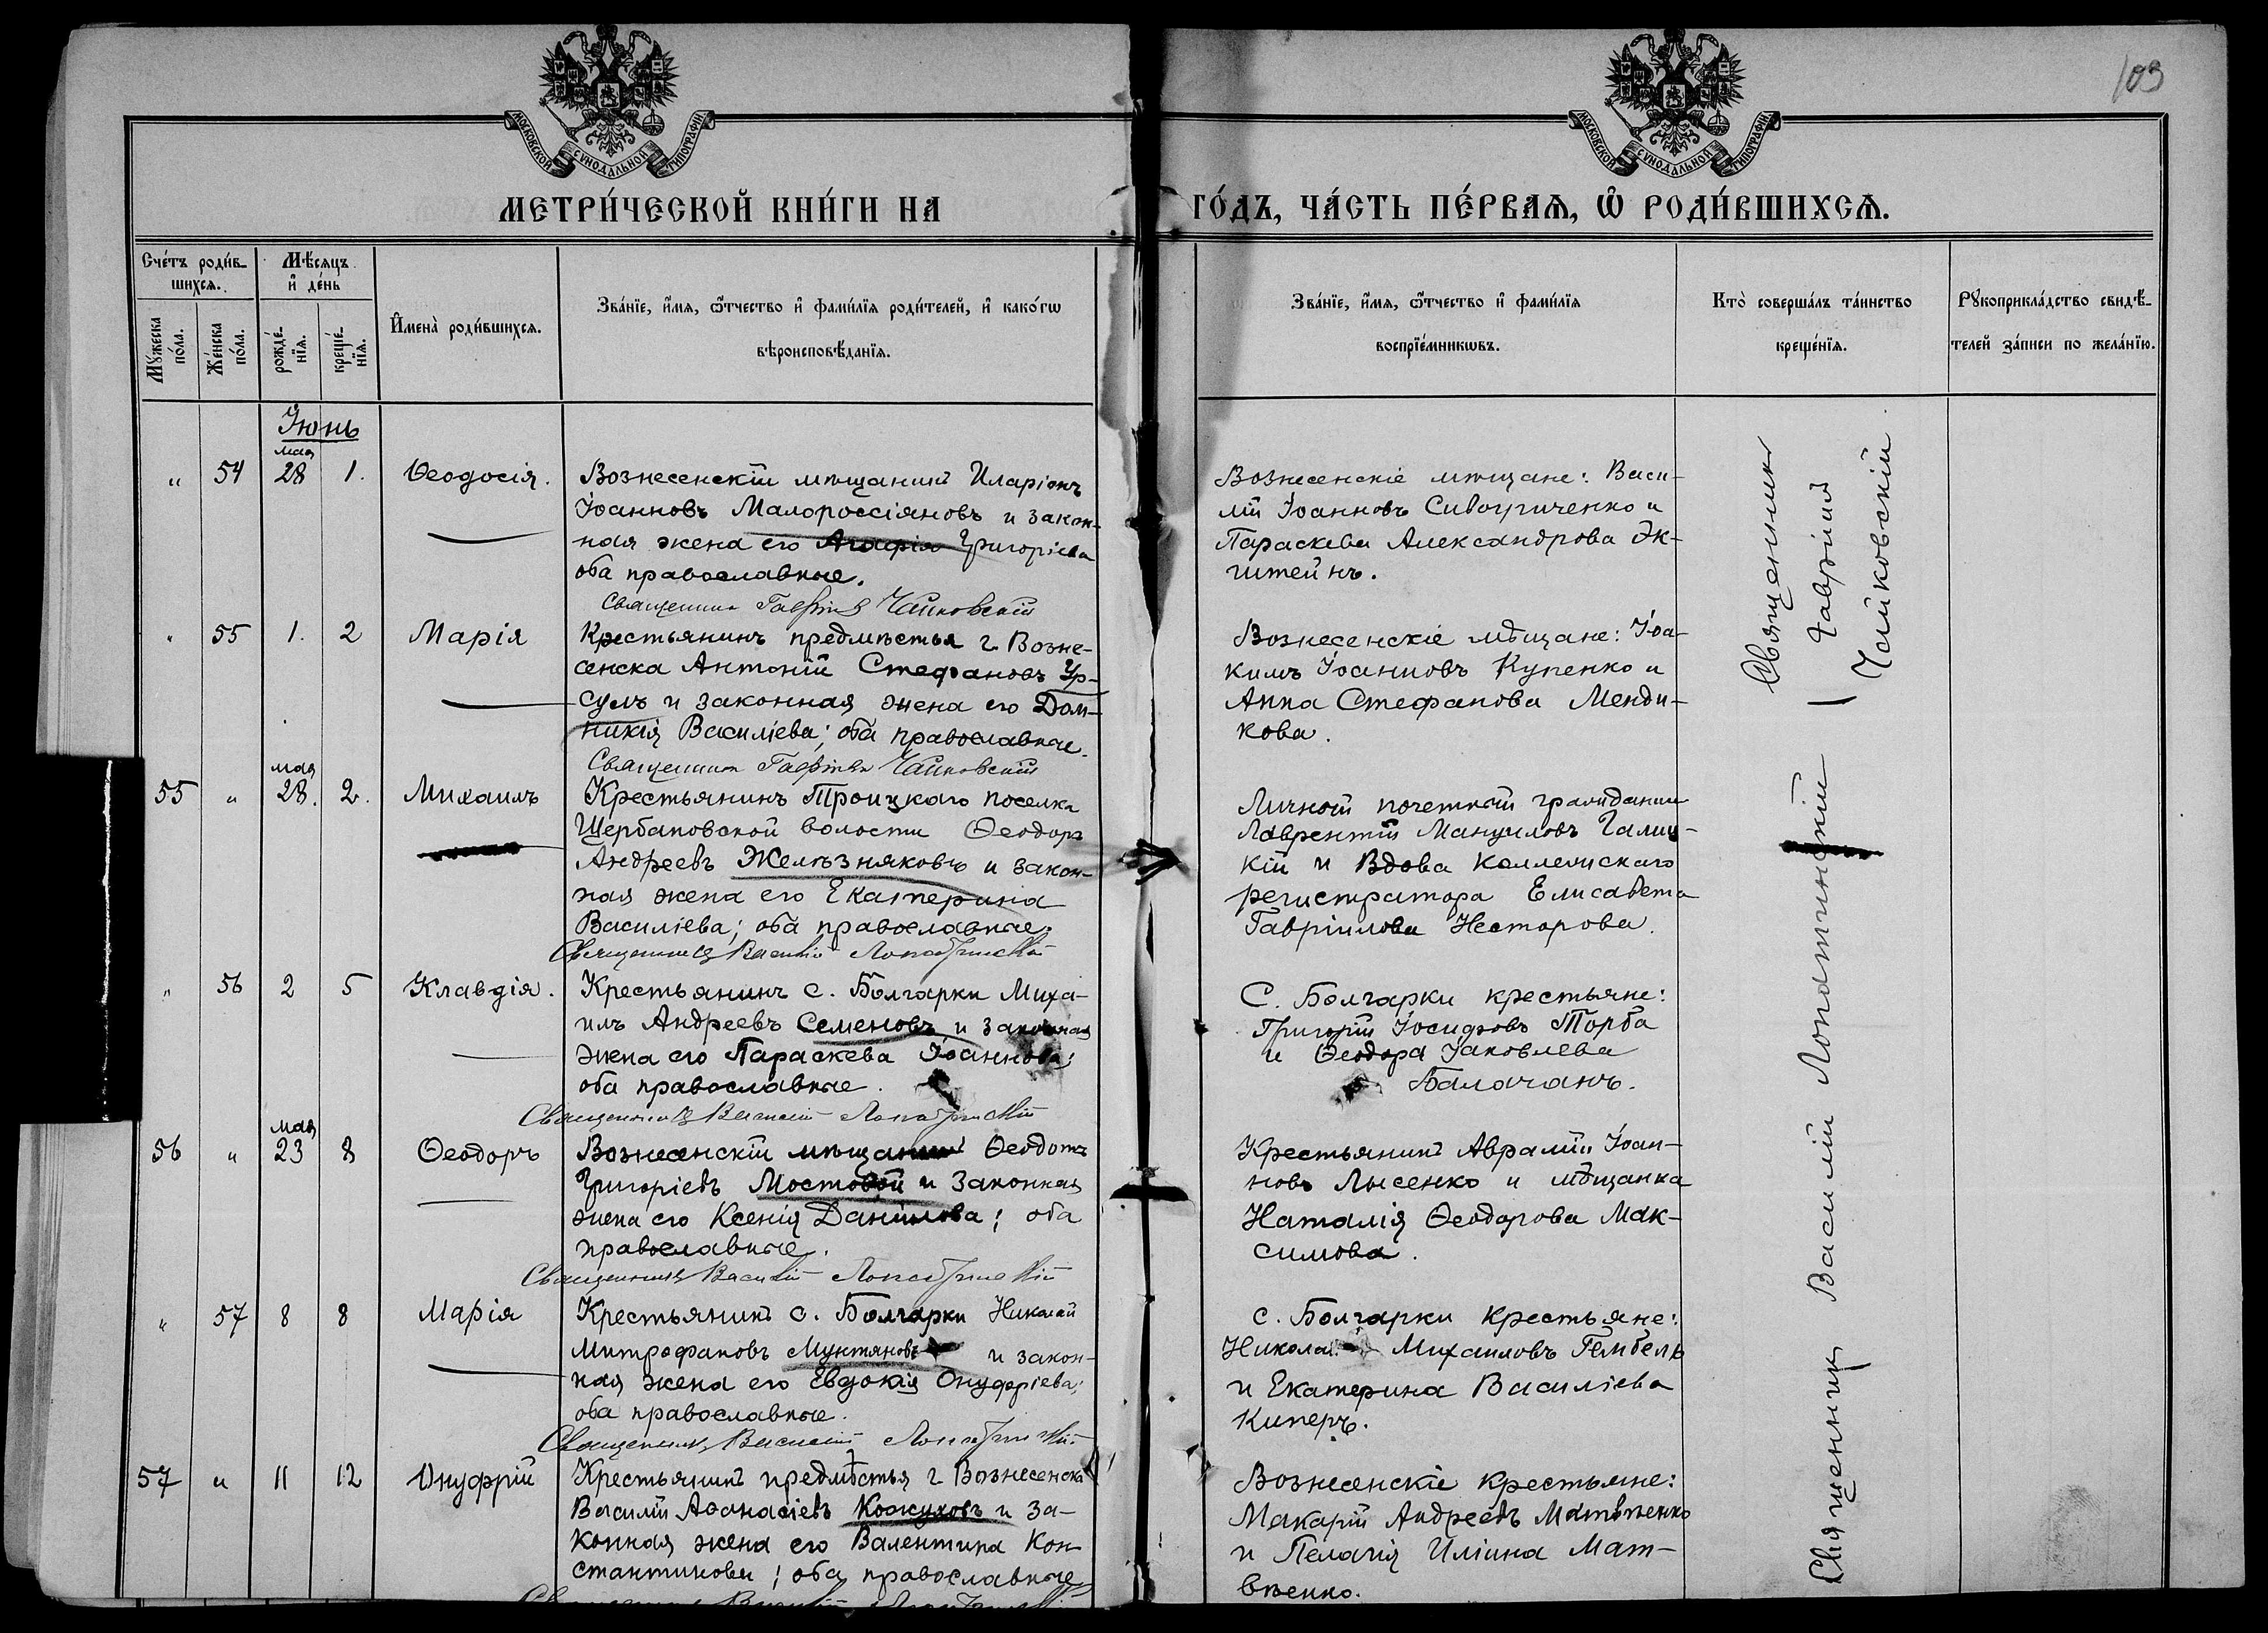 103
МОСКОВСКОЙ СѴНОДАЛЬНОЙ ТИПОГРАФІИ
МОСКОВСКОЙ СѴНОДАЛЬНОЙ ТИПОГРАФІИ
МЕТРИ́ЧЕСКОЙ КНИ́ГИ НА
ГО́ДЪ, ЧА́СТЬ ПЕ́РВАѦ, Ѽ РОДИ́ВШИХСѦ.
Сче́тъ роди́в-
шихсѧ.
Мꙋ́жеска по́ла.
Же́нска по́ла.
Мѣ́сѧцъ и҆ де́нь
рожде́-нїѧ.
креще́-нїѧ.
И҆мена̀ роди́вшихсѧ.
Зва́нїе, и҆́мѧ, ѻ҆́тчество и҆ фами́лїѧ роди́телей, и҆ како́гѡ
вѣроисповѣ́данїѧ.
Зва́нїе, и҆́мѧ, ѻ҆́тчество и҆ фами́лїѧ
воспрїе́мникѡвъ.
Кто̀ соверша́лъ та́инство
креще́нїѧ.
Рꙋкоприкла́дство свидѣ́-
телей за́писи по жела́нїю.
Іюнь
мая
" 54 28 1. Ѳеодосія.
Вознесенскій мѣщанинъ Иларіонъ
Іоанновъ Малороссіяновъ и закон-
ная жена его Агафія Григоріева
оба православные.
Священник Гавріил Чайковскій
Вознесенскіе мѣщане: Васи-
лій Іоанновъ Сивогриченко и
Параскева Александрова Эк-
штейнъ.
" 55 1. 2 Марія
Крестьянинъ предмѣстья г. Возне-
сенска Антоній Стефановъ Ур-
сулъ и законная жена его Дом-
никія Василіева; оба православные.
Священник Гавріил Чайковскій
Вознесенскіе мѣщане: Іоа-
кимъ Іоанновъ Купенко и
Анна Стефанова Менди-
кова.
мая
55 " 28. 2. Михаилъ
Крестьянинъ Троицкаго поселка
Щербановской волости Ѳеодоръ
Андреевъ Желѣзняковъ и закон-
ная жена его Екатерина
Василіева; оба православные.
Священникъ Василій Лопатинскій
Личной почетный гражданин
Лаврентій Мануиловъ Галиц-
кій и Вдова Коллежскаго
регистратора Елисавета
Гавріилова Несторова.
" 56 2 5 Клавдія.
Крестьянинъ с. Болгарки Миха-
илъ Андреевъ Семеновъ и законная
жена его Параскева Іоаннова;
оба православные.
Священникъ Василій Лопатинскій
С. Болгарки крестьяне:
Григорій Іосифовъ Торба
и Ѳеодора Іаковлева
Балачанъ.
мая
56 " 23 8 Ѳеодоръ
Вознесенскій мѣщанинъ Ѳеодотъ
Григоріевъ Мостовой и законная
жена его Ксенія Даніилова; оба
православные.
Священникъ Василій Лопатинскій
Крестьянинъ Аврамій Іоан-
новъ Лысенко и мѣщанка
Наталія Ѳеодорова Мак-
симова.
" 57 8 8 Марія
Крестьянинъ с. Болгарки Николай
Митрофановъ Мунтяновъ и закон-
ная жена его Евдокія Онуфріева;
оба православные.
Священникъ Василій Лопатинскій
с. Болгарки крестьяне:
Николай Михаиловъ Гембель
и Екатерина Василіева
Киперъ.
57 " 11 12 Онуфрій
Крестьянинъ предмѣстья г. Вознесенска
Василій Аѳанасіевъ Кожуховъ и за-
конная жена его Валентина Кон-
стантинова; оба православные
Священникъ Василій Лопатинскій
Вознесенскіе крестьяне:
Макарій Андреевъ Матвѣенко
и Пелагія Иліина Мат-
вѣенко.
Священникъ
Гавріилъ
Чайковскій
Священникъ Василій Лопатинскій